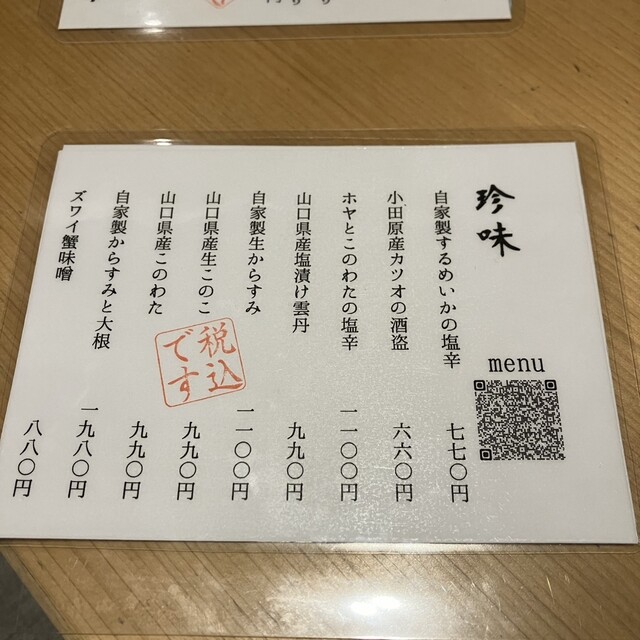 珍味
menu
自家製するめいかの塩辛 七七〇円
小田原産カツオの酒盗 六六〇円
ホヤとこのわたの塩辛 一一〇〇円
山口県産塩漬け雲丹 九九〇円
自家製生からすみ 一一〇〇円
山口県産生このこ 九九〇円
山口県産このわた 九九〇円
自家製からすみと大根 一九八〇円
ズワイ蟹味噌 八八〇円
税込
です